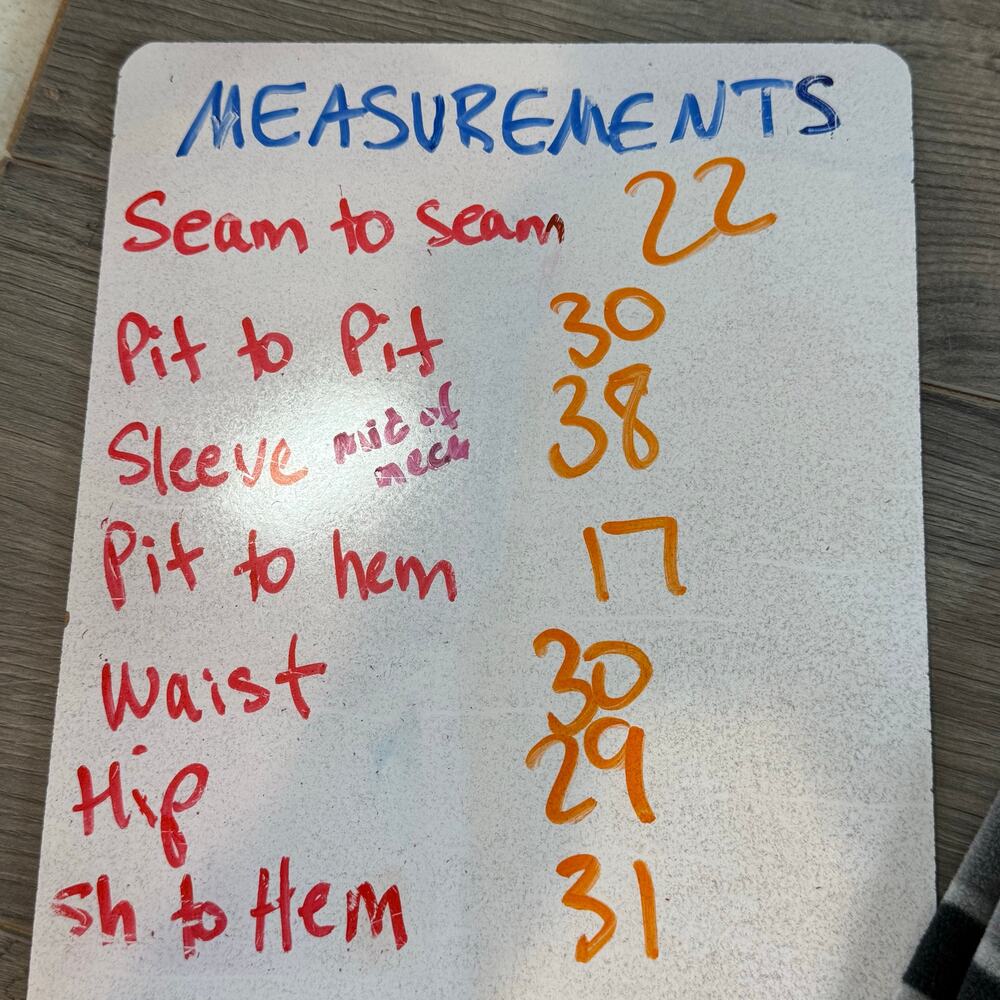 MEASUREMENTS
Seam to seam 22
Pit to Pit 30
Sleeve mit of neck 38
Pit to hem 17
Waist 30
Hip 29
Sh to Hem 31